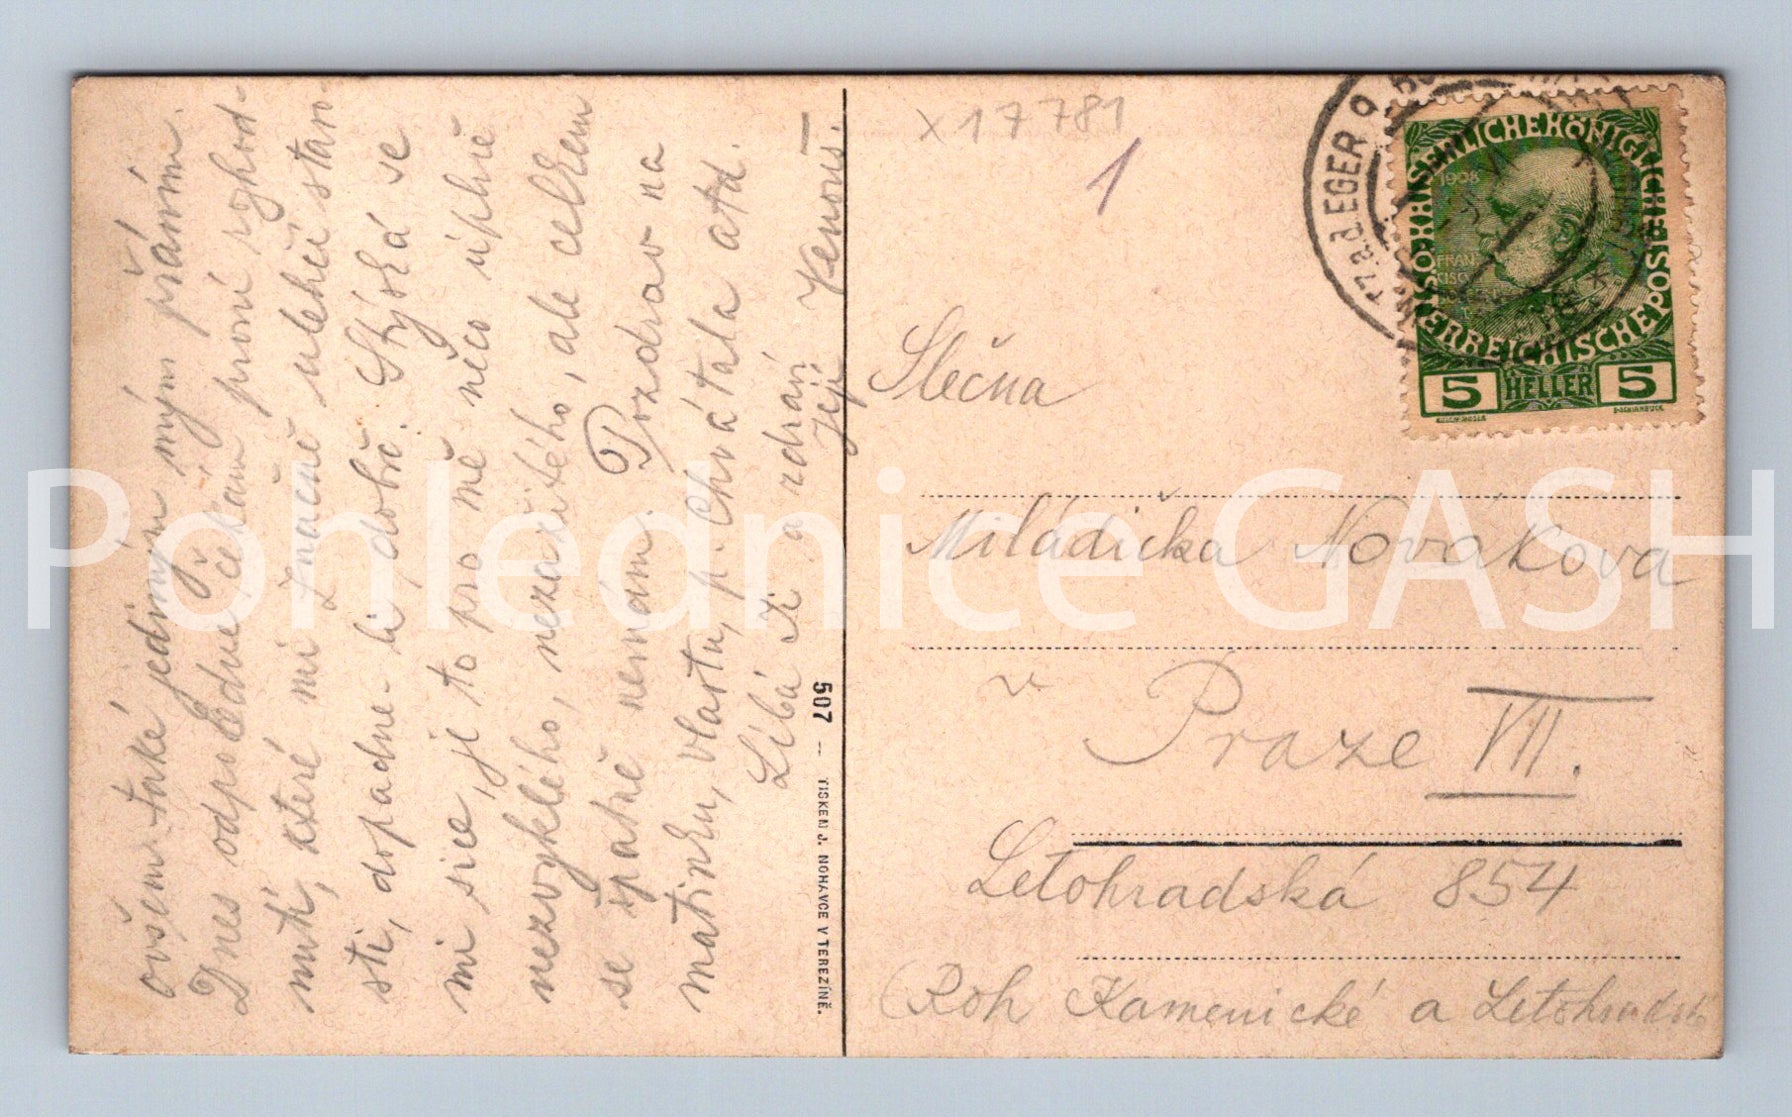 ovšem také jediným mým přáním.
Dnes odpoledne čekám první rozhod-
nutí, které mi značně ulehčí staro-
sti, dopadne-li dobře. Stýská se
mi sice, je to pro mě něco úplně
nezvyklého, nezažitého, ale celkem
se špatně nemám. Pozdrav na
matinku, Vlastu, p. Chvátala atd.
Líbá Ti a zdraví
Její
507 – TISKEM J. NOHAVCE V TEREZÍNĚ.
x 17781
1
KAISERLICHE KÖNIGLICHE POST
ÖSTERREICHISCHE
1908
FRAN
5 HELLER 5
a.d. EGER
Slečna
Miládička Nováková
v Praze VII.
Letohradská 854
(Roh Kamenické a Letohradské
Pohlednice GASH